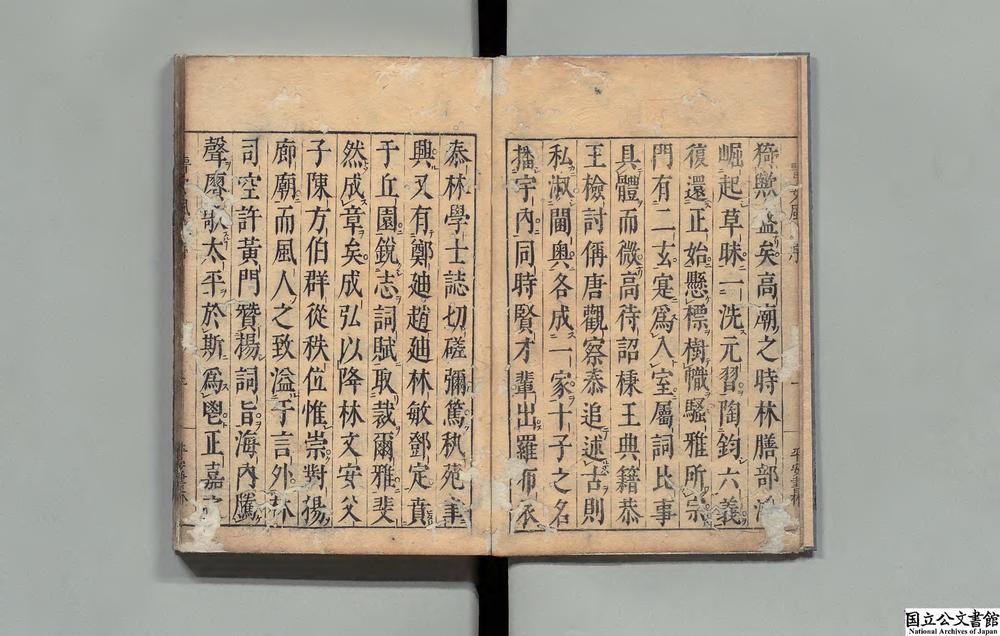 猗歟盛矣高廟之時林膳部
崛起草昧一洗元習陶鈞六義
復還正始懸標樹幟騷雅所宗
門有二玄寔爲入室屬詞比事
具體而微高待詔棅王典籍恭
王檢討偁唐觀察泰追述古則
私淑閫奥各成一家十子之名
播宇內同時賢才輩出羅布
泰林學士誌切磋彌篤秋苑聿
興又有鄭廸趙廸林敏鄧定賁
于丘園銳志詞賦取裁爾雅斐
然成章矣成弘以降林文安父
子陳方伯群從秩位惟崇對揚
廊廟而風人之致溢于言外林
司空許黃門贊揚詞旨海內騰
聲厚歌太平於斯爲鬯正嘉之
平安書林
国立公文書館
National Archives of Japan